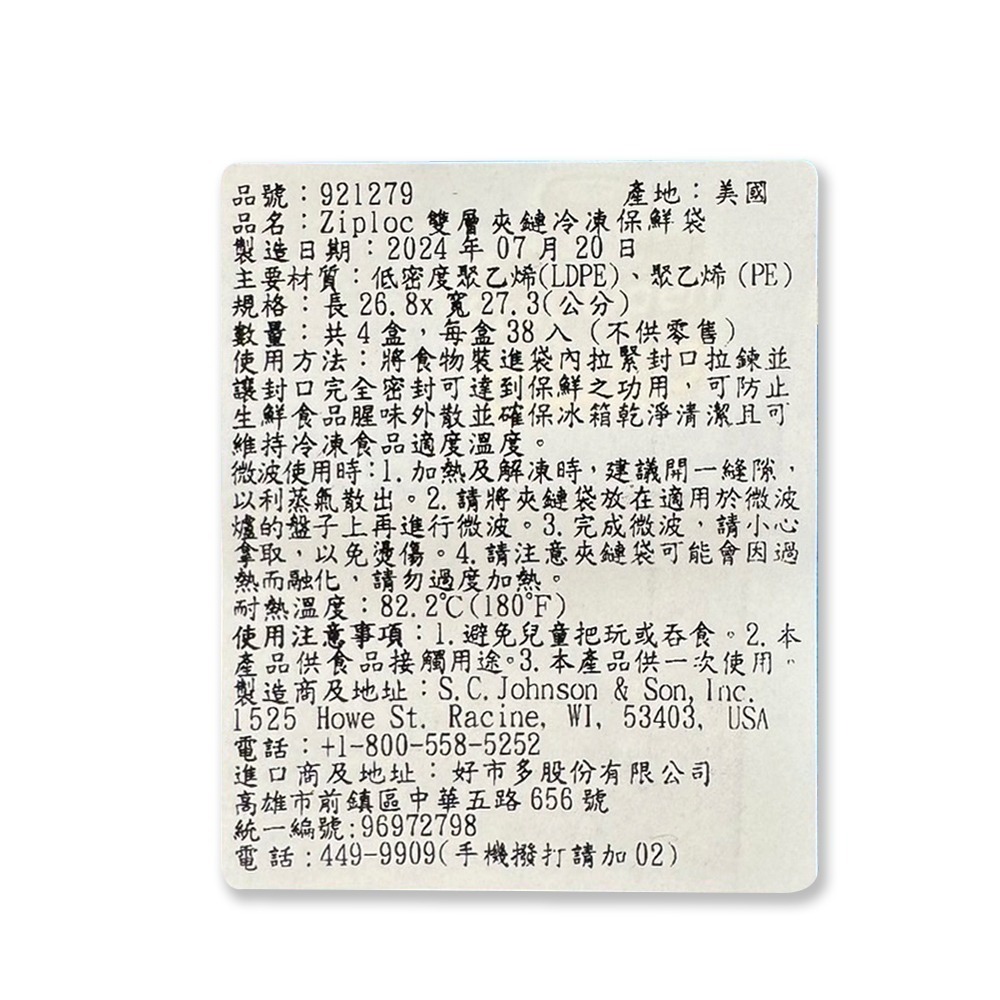 品號：921279 產地：美國
品名：Ziploc 雙層夾鏈冷凍保鮮袋
製造日期：2024 年 07 月 20 日
主要材質：低密度聚乙烯(LDPE)、聚乙烯 (PE)
規格：長 26.8x 寬 27.3(公分)
數量：共 4 盒，每盒 38 入（不供零售）
使用方法：將食物裝進袋內拉緊封口拉鍊並
讓封口完全密封可達到保鮮之功用，可防止
生鮮食品腥味外散並確保冰箱乾淨清潔且可
維持冷凍食品適度溫度。
微波使用時：1. 加熱及解凍時，建議開一縫隙，
以利蒸氣散出。2. 請將夾鏈袋放在適用於微波
爐的盤子上再進行微波。3. 完成微波，請小心
拿取，以免燙傷。4. 請注意夾鏈袋可能會因過
熱而融化，請勿過度加熱。
耐熱溫度：82.2℃(180℉)
使用注意事項：1. 避免兒童把玩或吞食。2. 本
產品供食品接觸用途。3. 本產品供一次使用。
製造商及地址：S.C. Johnson & Son, Inc.
1525 Howe St. Racine, WI, 53403, USA
電話：+1-800-558-5252
進口商及地址：好市多股份有限公司
高雄市前鎮區中華五路 656 號
統一編號:96972798
電話:449-9909(手機撥打請加 02)